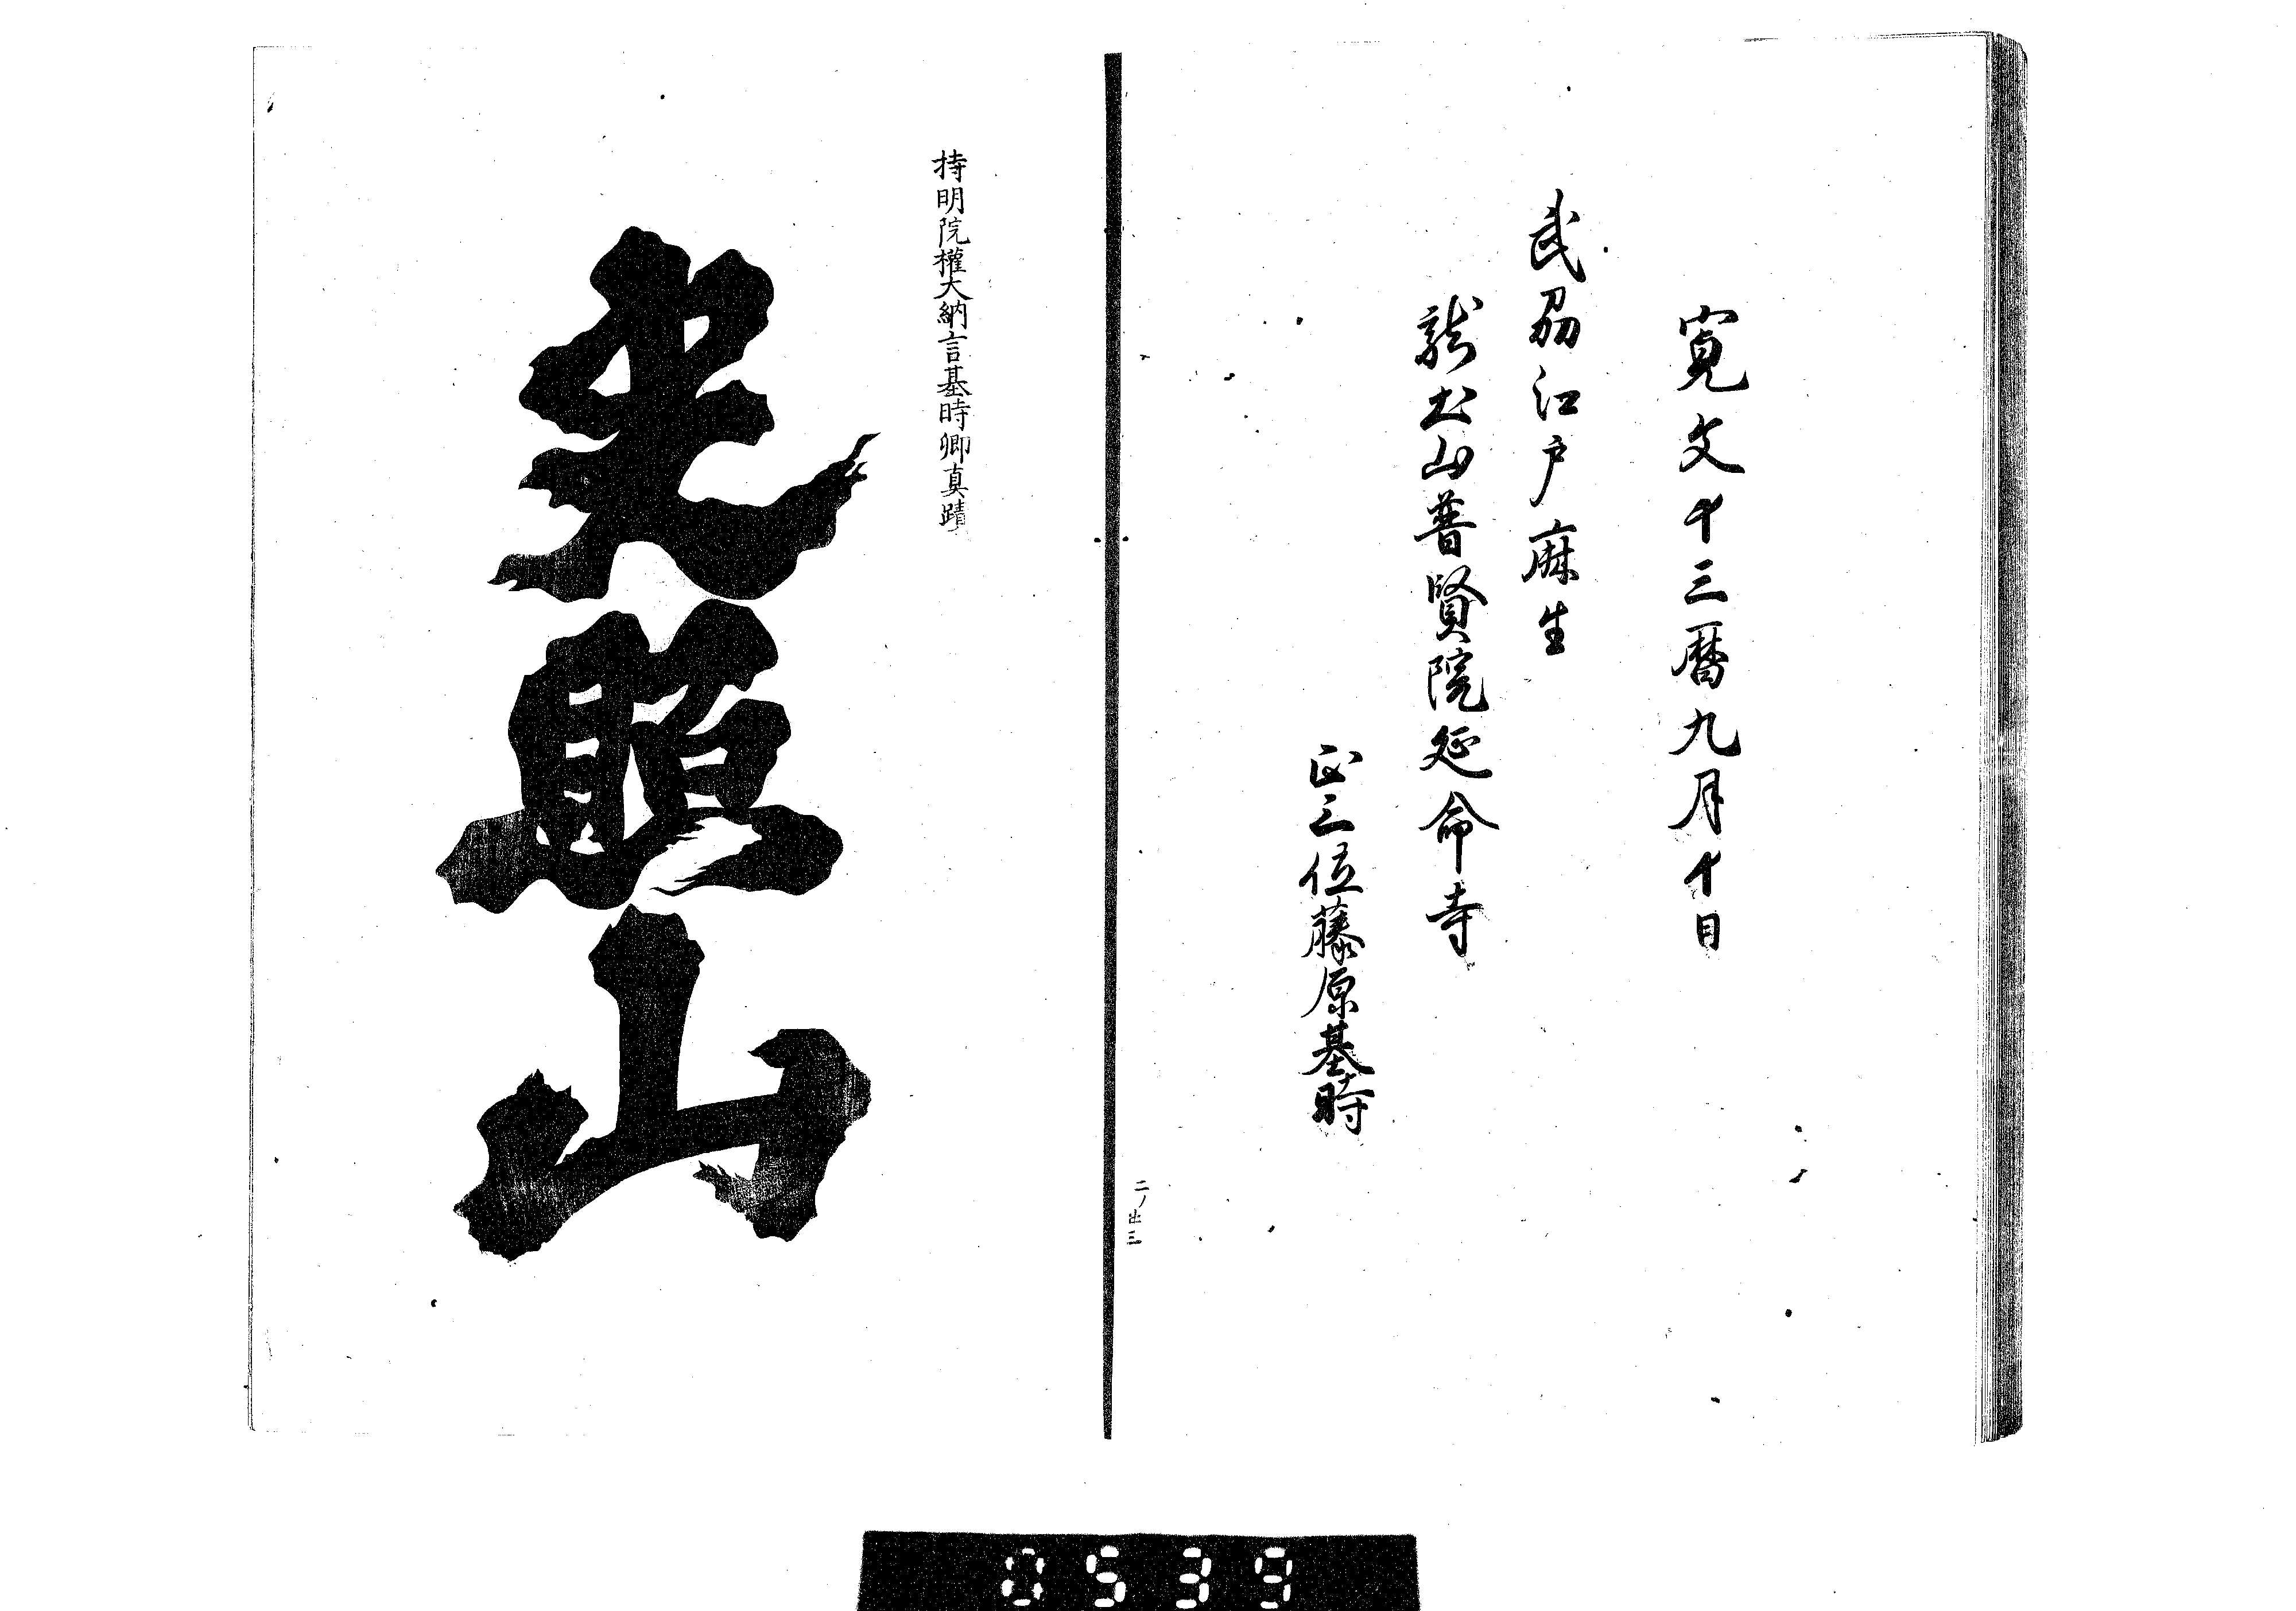 寛文十三暦九月十日
武刕江戸麻生
龍土山普賢院延命寺
正三位藤原基時
二ノ廿三
持明院權大納言基時卿真蹟
光照山
0539